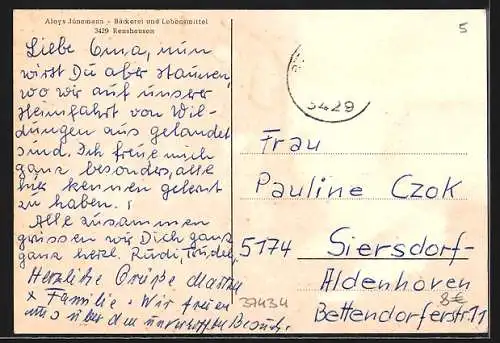 Aloys Jünemann - Bäckerei und Lebensmittel
3429 Renshausen
5
Liebe Oma, nun
wirst Du aber staunen,
wo wir auf unserer
Heimfahrt von Wil-
dungen aus gelandet
sind. Ich freue mich
ganz besonders, alle
hier kennen gelernt
zu haben.
Alle zusammen
grüssen wir Dich ganz
ganz herzl. Rudi, Trudel,
Herzliche Grüße
+ Familie. Wir freuen
uns über den unverhofften Besuch.
3429
Frau
Pauline Czok
5174 Siersdorf-
Aldenhoven
Bettendorferstr. 11
37434
8€